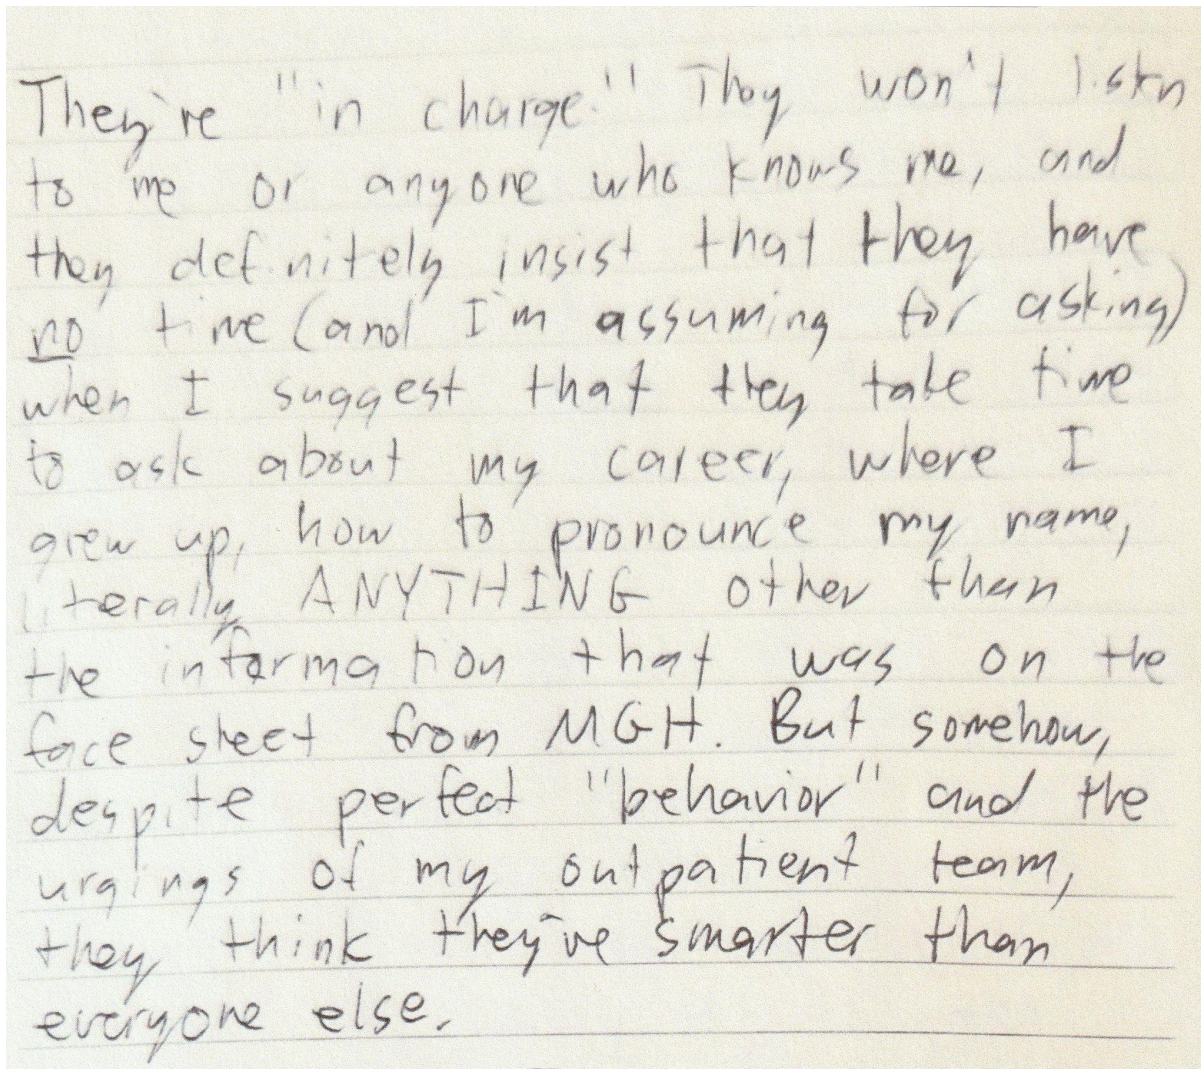 They're "in charge." They won't listen
to me or anyone who knows me, and
they definitely insist that they have
no time (and I'm assuming for asking)
when I suggest that they take time
to ask about my career, where I
grew up, how to pronounce my name,
literally ANYTHING other than
the information that was on the
face sheet from MGH. But somehow,
despite perfect "behavior" and the
urgings of my outpatient team,
they think they're smarter than
everyone else.